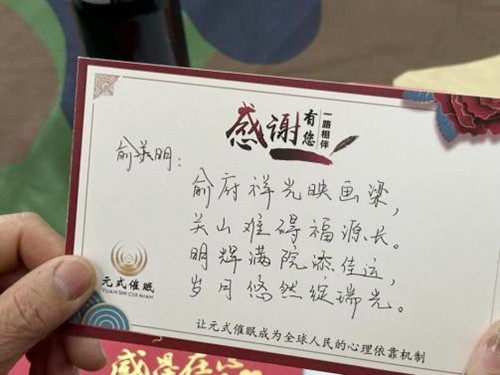 感谢有您
一路相伴
俞关明:
俞府祥光映画梁,
关山难碍福源长。
明辉满院添佳运,
岁月悠然绽瑞光。
元式催眠
YUAN SHI CUI MIAN
让元式催眠成为全球人民的心理依靠机制
感恩在心